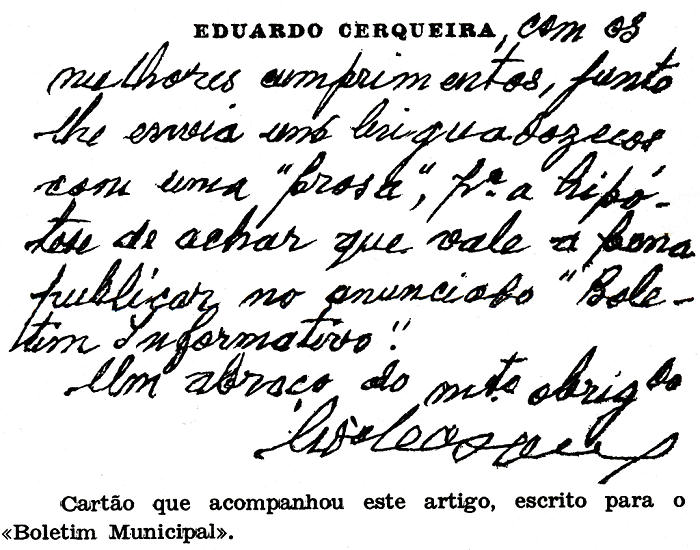 EDUARDO CERQUEIRA, com os
melhores cumprimentos, junto
lhe envia uns linguadozecos
com uma "prosa", pª a hipó-
tese de achar que vale a pena
publicar no anunciado "Bole-
tim Informativo".
Um abraço do mtº obrigdo
Cartão que acompanhou este artigo, escrito para o
«Boletim Municipal».